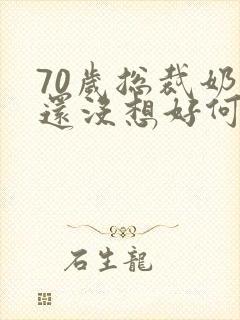 70歲總裁奶
還沒想好何
石生龍